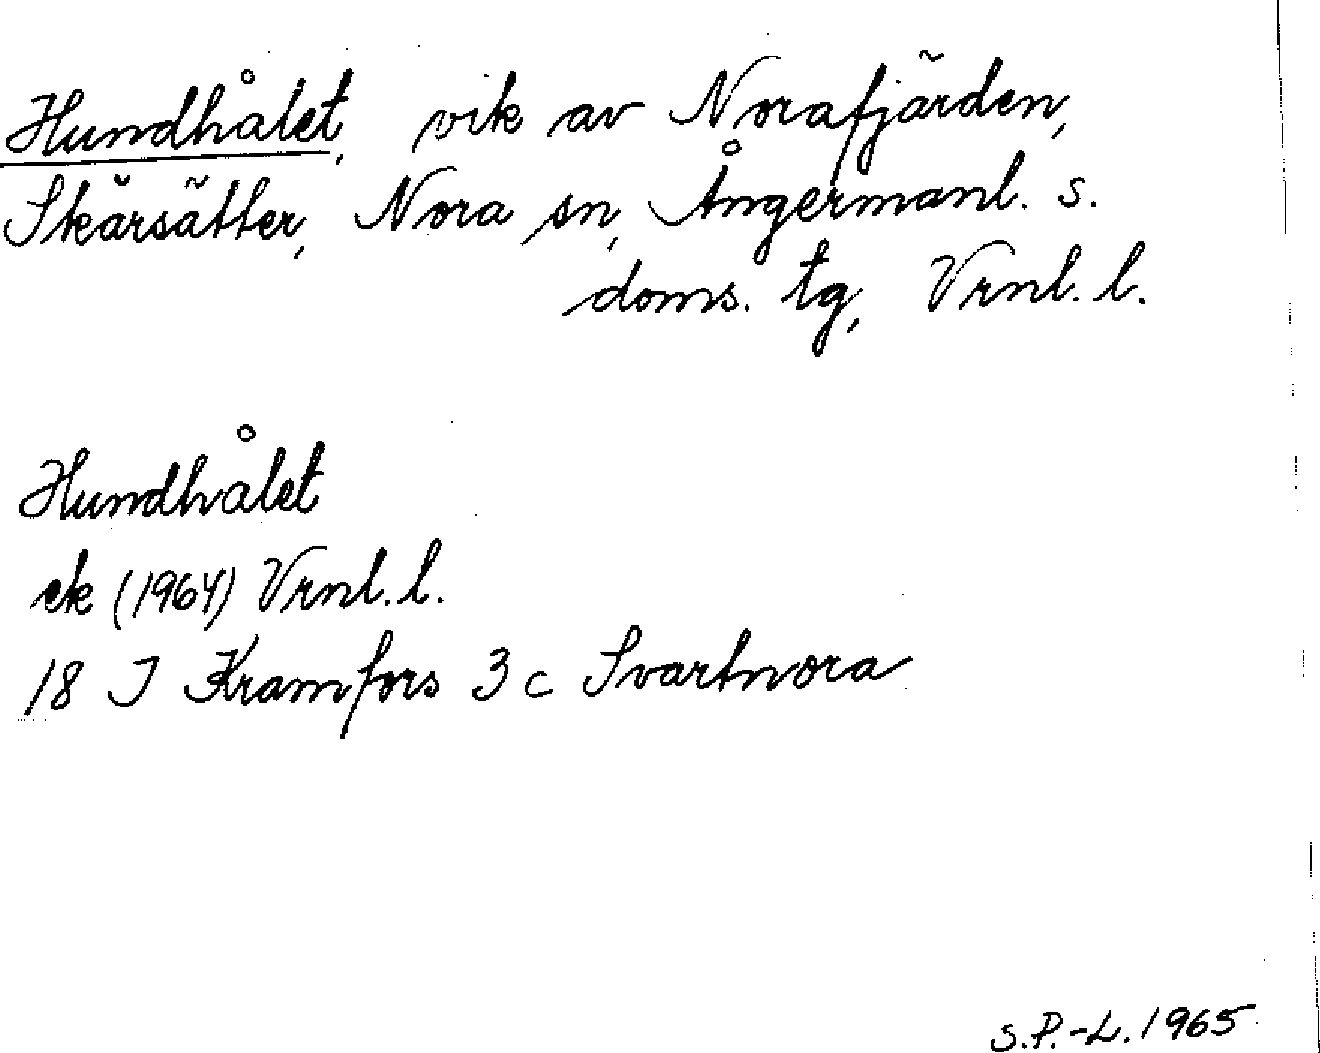 Hundhålet, vik av Norafjärden,
Skärsätter, Nora sn, Ångermanl. s.
doms. tg, Vrnl. l.
Hundhålet
ek (1964) Vrnl. l.
18 I Kramfors 3 c Svartnora
S.P.-L. 1965